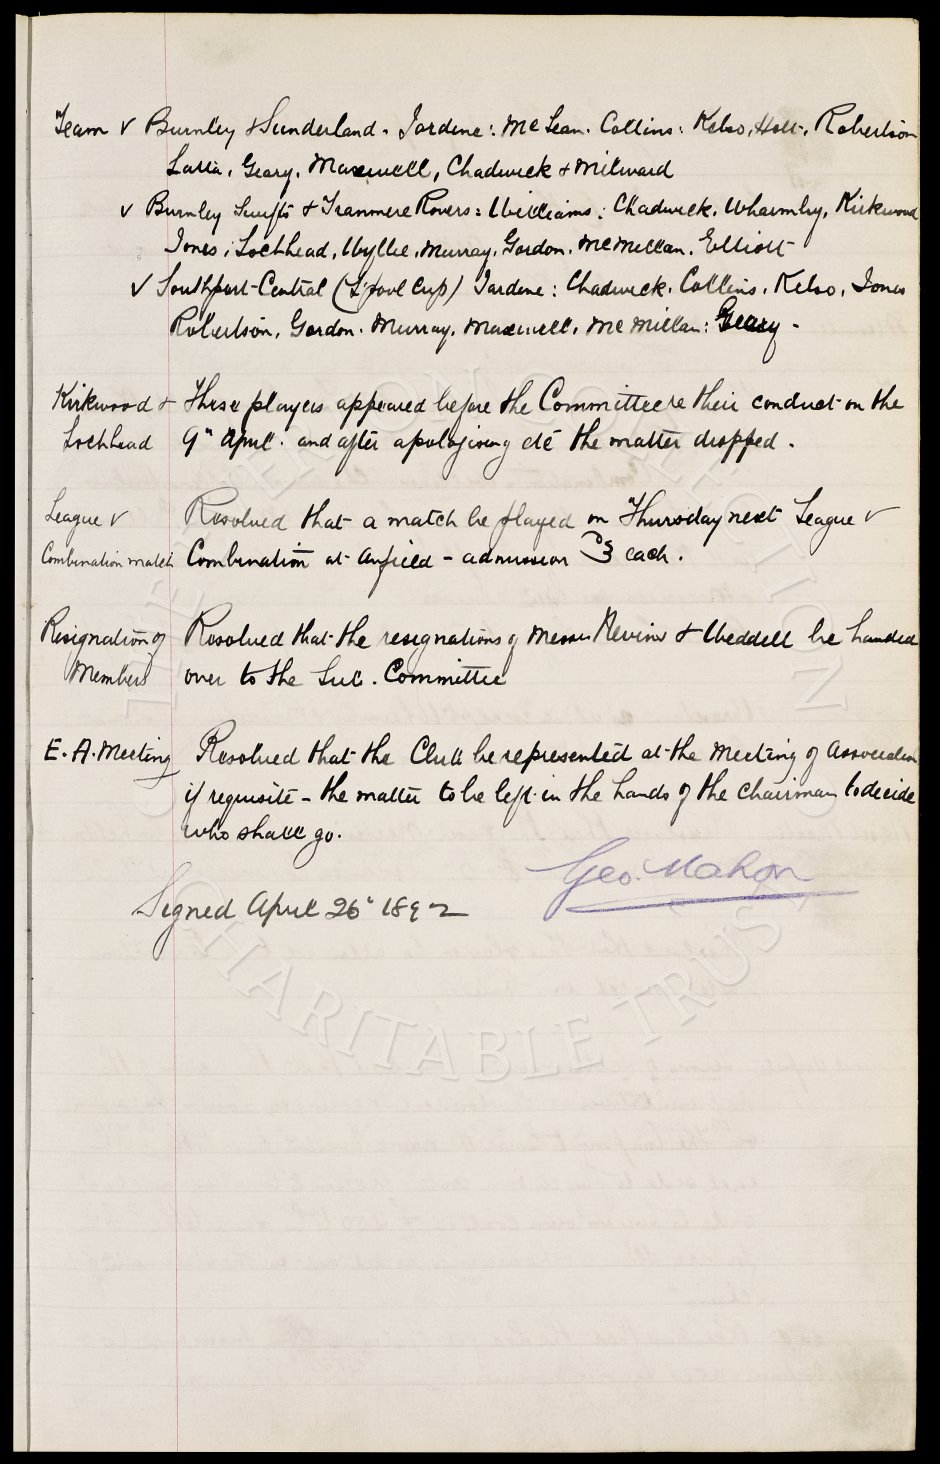 Team v Burnley & Sunderland. Jardine: McLean. Collins: Kelso, Holt, Robertson
Latta, Geary, Maxwell, Chadwick & Milward
v Burnley Swifts & Tranmere Rovers: Williams: Chadwick. Wharmby, Kirkwood
Jones; Lochhead, Wyllie, Murray, Gordon, McMillan, Elliott
v Southport Central (L'pool Cup) Jardine: Chadwick. Collins, Kelso, Jones
Robertson, Gordon, Murray, Maxwell, McMillan: Geary -
Kirkwood & These players appeared before the Committee re their conduct on the
Lochhead 9" April. and after apologising etc the matter dropped.
League v Resolved that a match be played on Thursday next League v
Combination match Combination at Anfield - admission 3 each.
Resignation of Resolved that the resignations of Messrs Nevins & Weddell be handed
Members over to the Sub. Committee
E. A. Meeting Resolved that the Club be represented at the Meeting of Association
if requisite - the matter to be left in the hands of the Chairman to decide
who shall go.
Geo. Mahon
Signed April 26" 1892
THE EVERTON COLLECTION
CHARITABLE TRUST